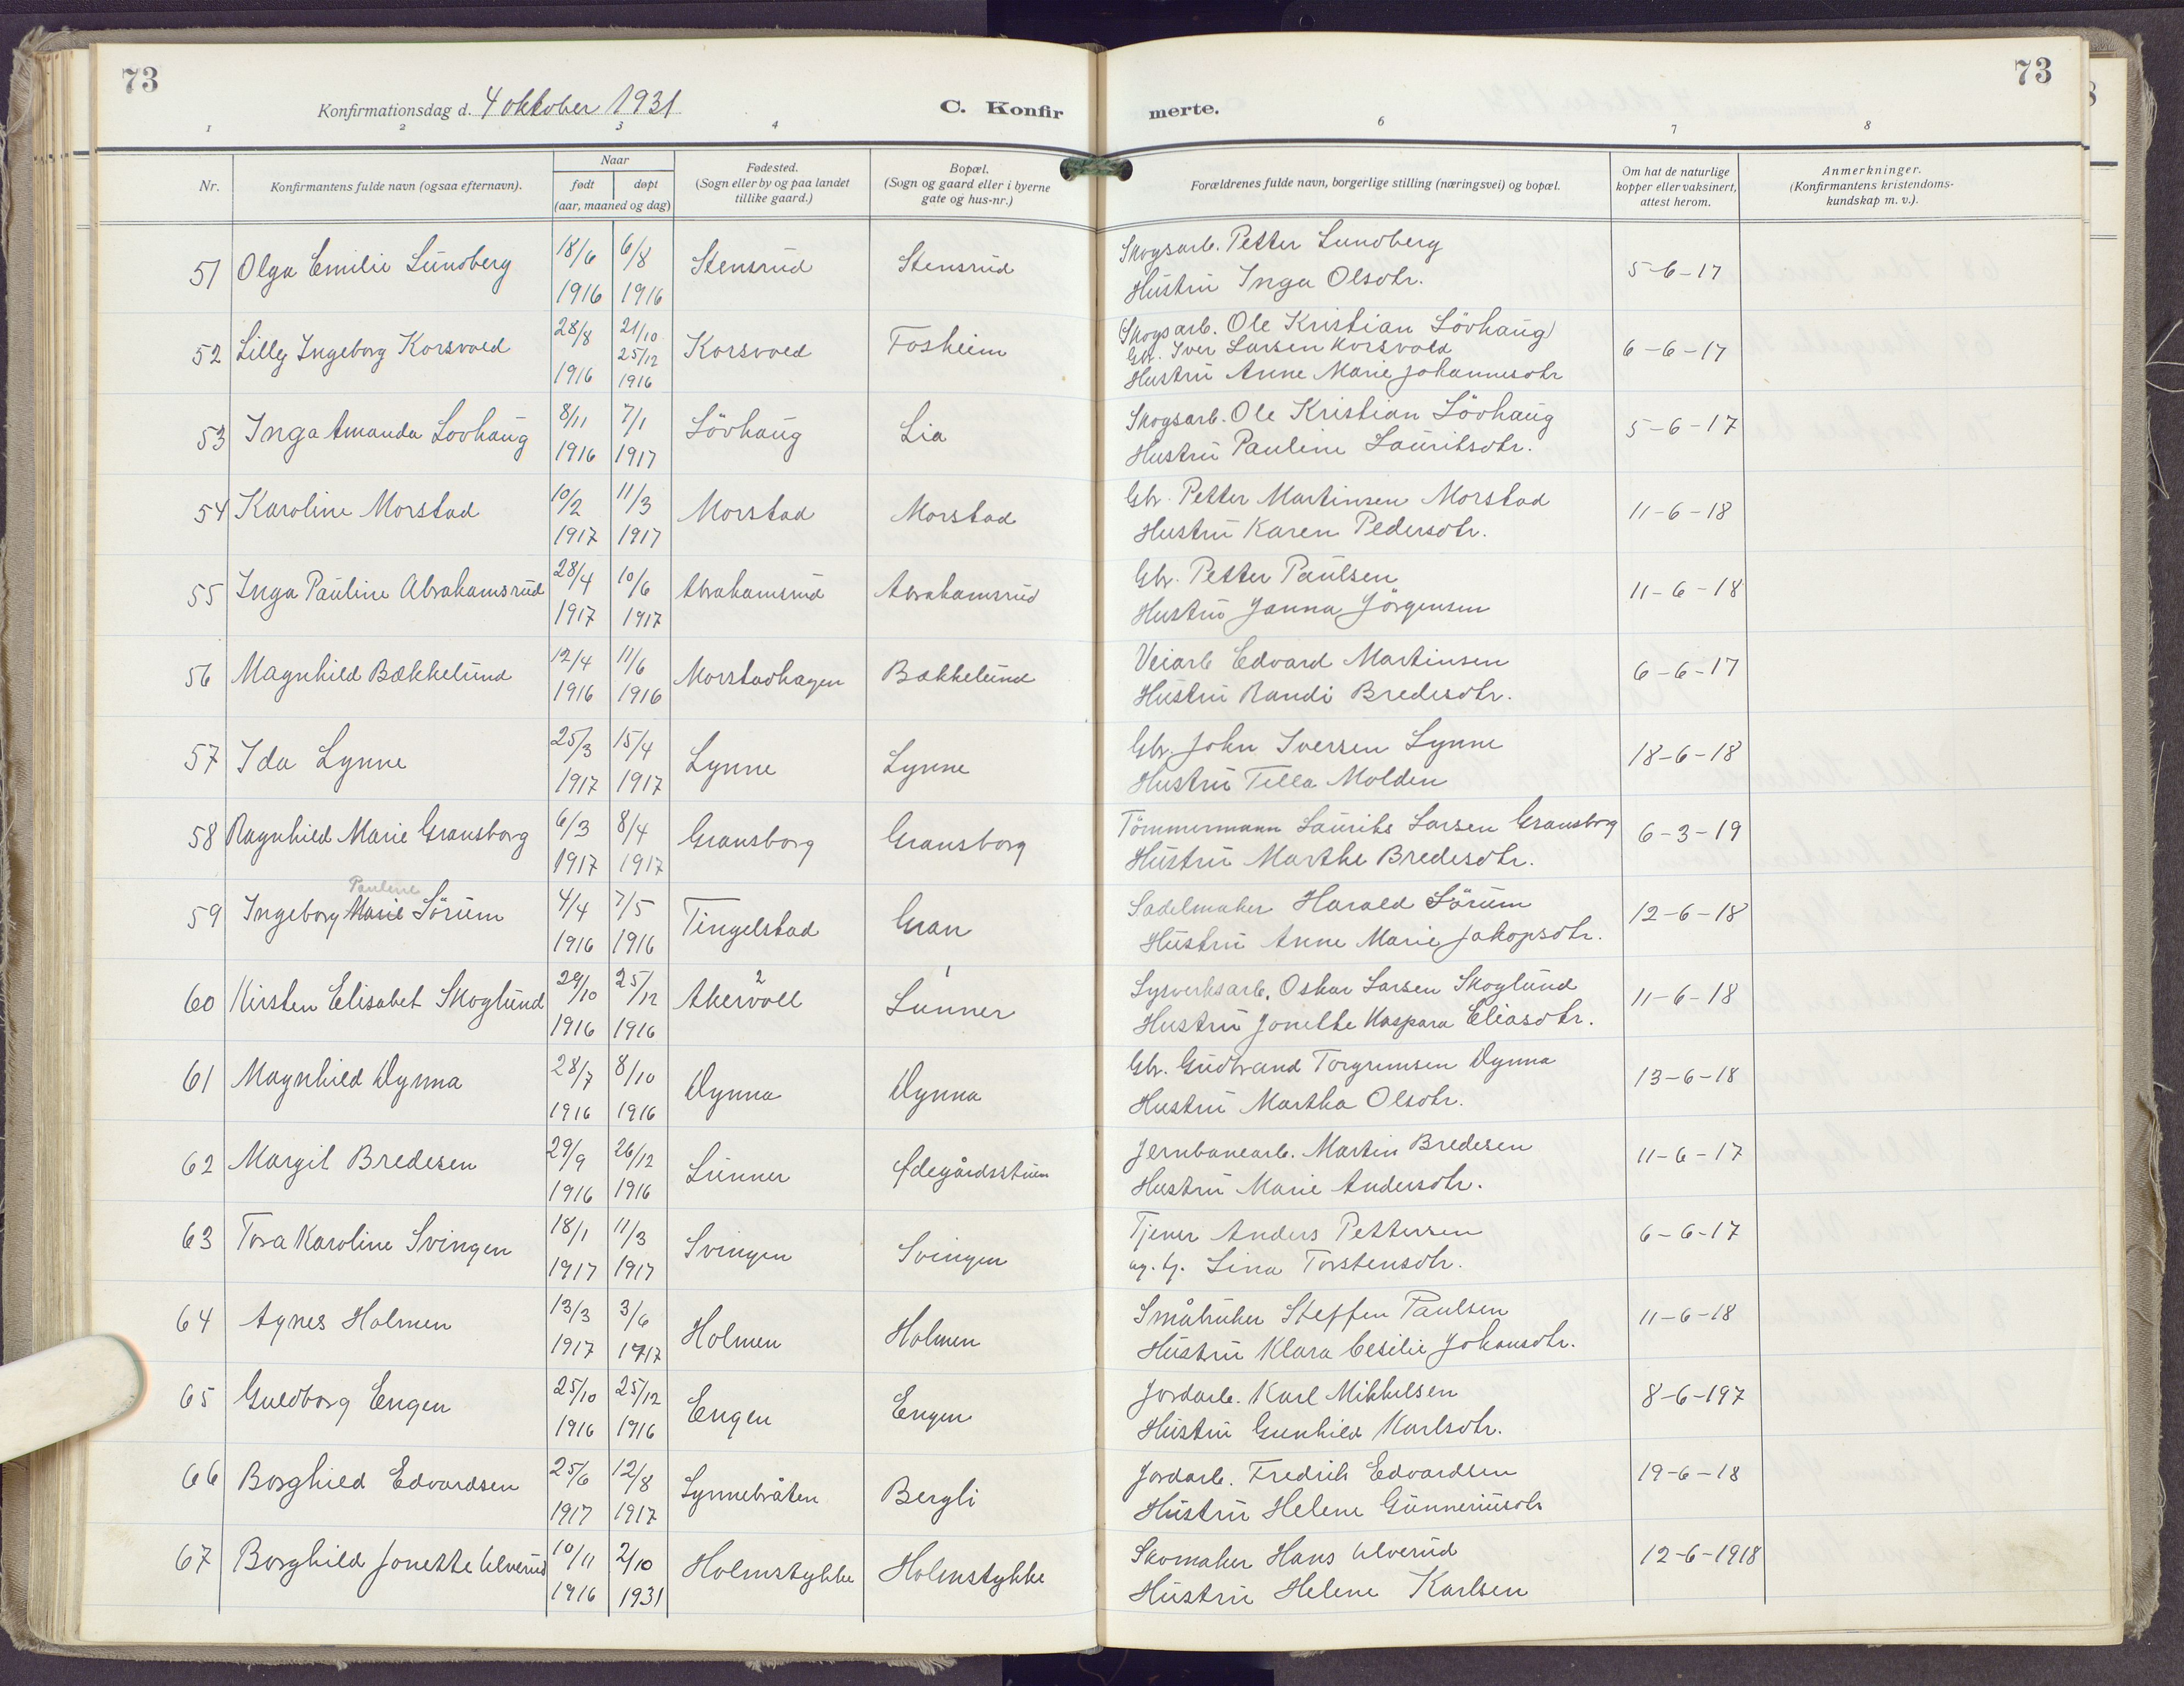 73
73
Konfirmationsdag d. 4 oktober 1931
C. Konfir
merte.
1 2 3 4 6 7 8
Nr.
Konfirmantens fulde navn (ogsaa efternavn).
Naar
født døpt
(aar, maaned og dag)
Fødested.
(Sogn eller by og paa landet
tillike gaard.)
Bopæl.
(Sogn og gaard eller i byerne
gate og hus-nr.)
Forældrenes fulde navn, borgerlige stilling (næringsvei) og bopæl.
Om hat de naturlige
kopper eller vaksinert,
attest herom.
Anmerkninger.
(Konfirmantens kristendoms-
kundskap m. v.).
51 Olga Emilie Lundberg 18/6 6/8 Stensrud Stensrud Skogsarb. Petter Lundberg 5-6-17
1916 1916 Hustru Inga Olsdtr.
52 Lilly Ingeborg Korsvold 28/8 21/10 Korsvold Fosheim (Skogsarb. Ole Kristian Lövhaug) 6-6-17
25/12 Gbr. Iver Larsen Korsvold
1916 1916 Hustru Anne Marie Johannesdtr
53 Inga Amanda Lovhaug 8/11 7/1 Lövhaug Lia Skogsarb. Ole Kristian Lövhaug 5-6-17
1916 1917 Hustru Pauline Lauritsdtr.
54 Karoline Morstad 10/2 11/3 Morstad Morstad Gbr. Petter Martinsen Morstad 11-6-18
1917 1917 Hustru Karen Pedersdtr.
55 Inga Pauline Abrahamsrud 28/4 10/6 Abrahamsrud Abrahamsrud Gbr. Petter Paulsen 11-6-18
1917 1917 Hustru Janna Jörgensen
56 Magnhild Bækkelund 12/4 11/6 Morstadhagen Bækkelund Veiarb Edvard Martinsen 6-6-17
1916 1916 Hustru Randi Bredesdtr.
57 Ida Lynne 25/3 15/4 Lynne Lynne Gbr. John Iversen Lynne 18-6-18
1917 1917 Hustru Tella Molden
58 Ragnhild Marie Gransborg 6/3 8/4 Gransborg Gransborg Tömmermann Laurits Larsen Gransborg 6-3-19
1917 1917 Hustru Marthe Bredesdtr.
Pauline
59 Ingeborg Marie Sörum 4/4 7/5 Tingelstad Gran Sadelmaker Harald Sörum 12-6-18
1916 1916 Hustru Anne Marie Jakopsdtr.
60 Kirsten Elisabet Skoglund 29/10 25/12 Akervoll Lunner Lysverksarb. Oskar Larsen Skoglund 11-6-18
1916 1916 Hustru Jonette Kaspara Eliasdtr.
61 Magnhild Dynna 28/7 8/10 Dynna Dynna Gbr. Gudbrand Torgrimsen Dynna 13-6-18
1916 1916 Hustru Martha Olsdtr.
62 Margit Bredesen 29/9 26/12 Lunner Ödegårdsstuen Jernbanearb. Martin Bredesen 11-6-17
1916 1916 Hustru Marie Andersdtr.
63 Tora Karoline Svingen 18/1 11/3 Svingen Svingen Tjener Anders Pettersen 6-6-17
1917 1917 ug. tj. Lina Torstensdtr.
64 Agnes Holmen 13/3 3/6 Holmen Holmen Småbruker Steffen Paulsen 11-6-18
1917 1917 Hustru Klara Cesilie Johansdtr.
65 Guldborg Engen 25/10 25/12 Engen Engen Jordarb. Karl Mikkelsen 8-6-197
1916 1916 Hustru Gunhild Karlsdtr.
66 Borghild Edvardsen 25/6 12/8 Lynnebråten Bergli Jordarb. Fredrik Edvardsen 19-6-18
1917 1917 Hustru Helene Gunneriusdtr
67 Borghild Jonette Ulverud 10/11 2/10 Holmstykke Holmstykke Skomaker Hans Ulverud 12-6-1918
1916 1931 Hustru Helene Karlsen